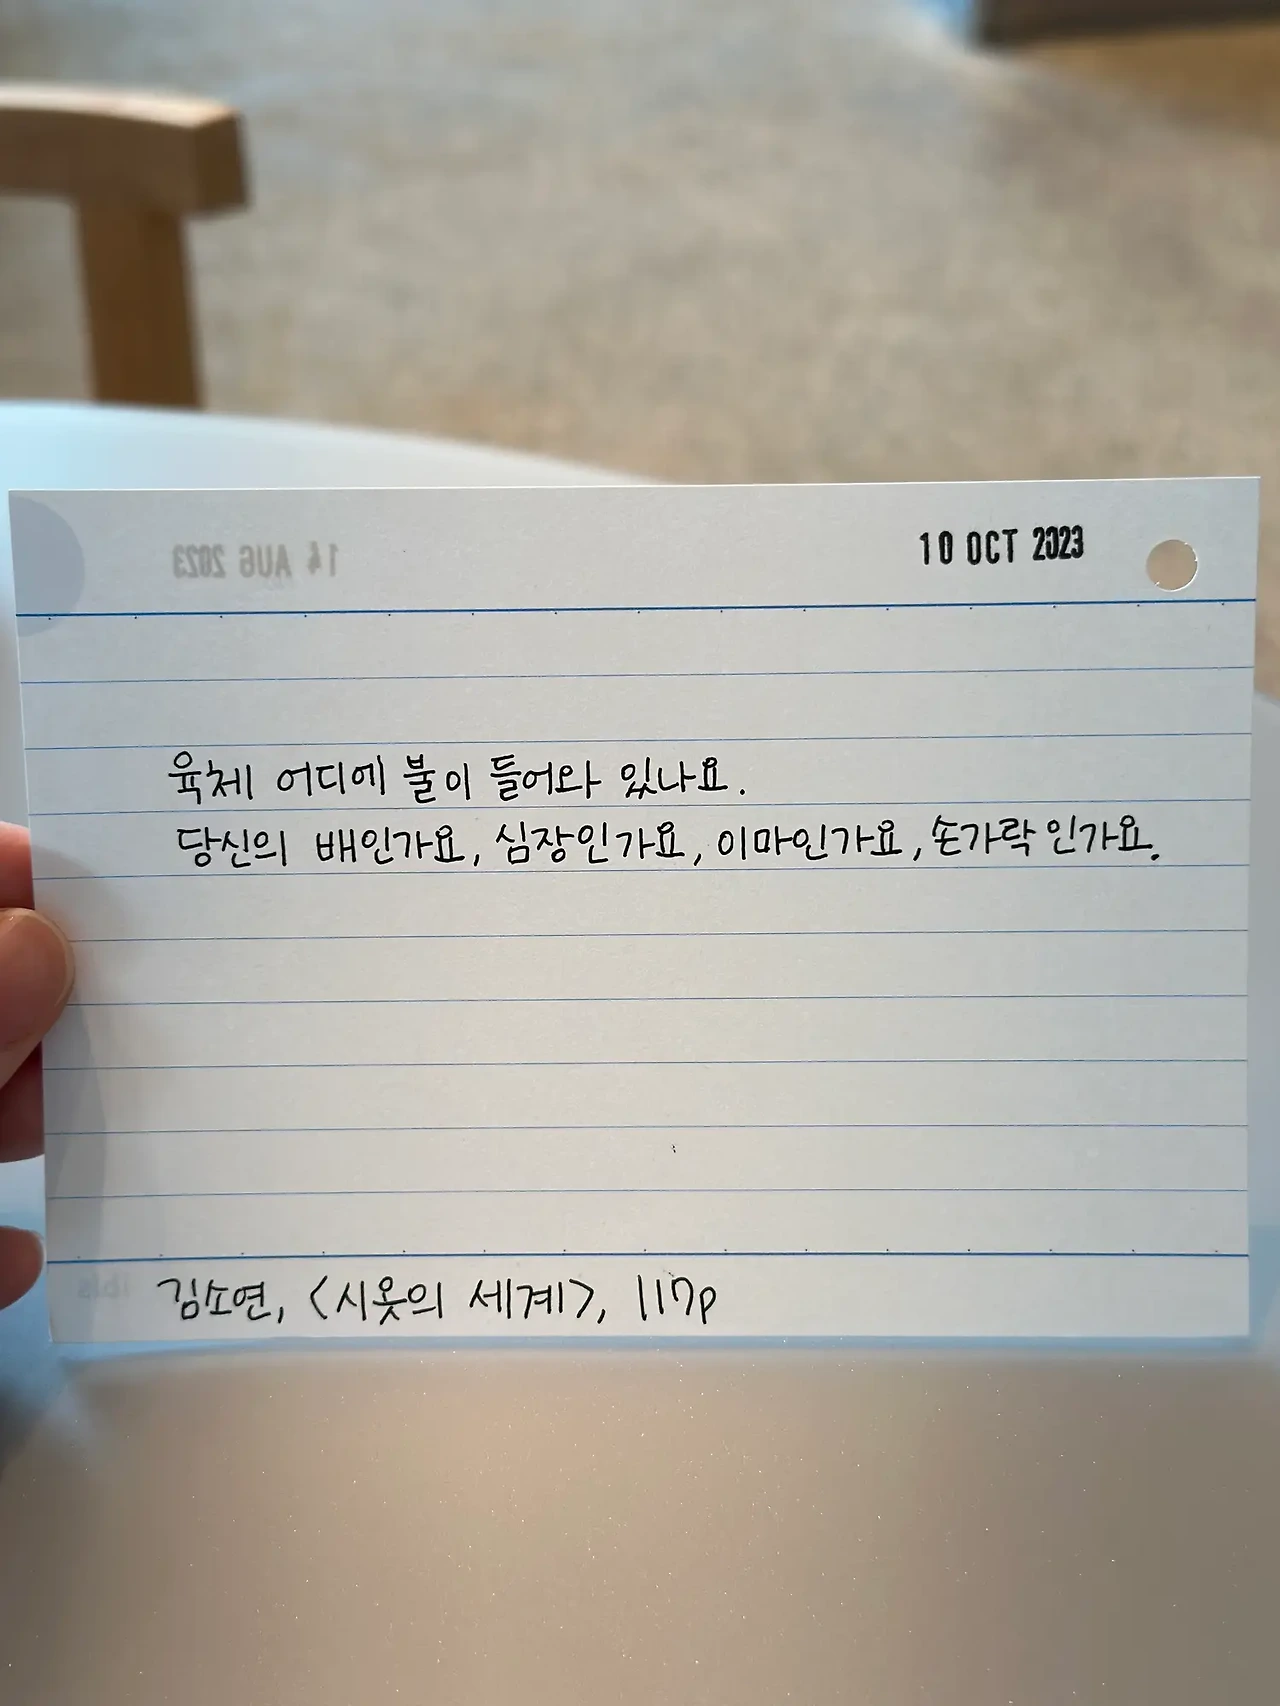 14 AUG 2023
10 OCT 2023
육체 어디에 불이 들어와 있나요.
당신의 배인가요, 심장인가요, 이마인가요, 손가락인가요.
김소연, <시옷의 세계>, 117p